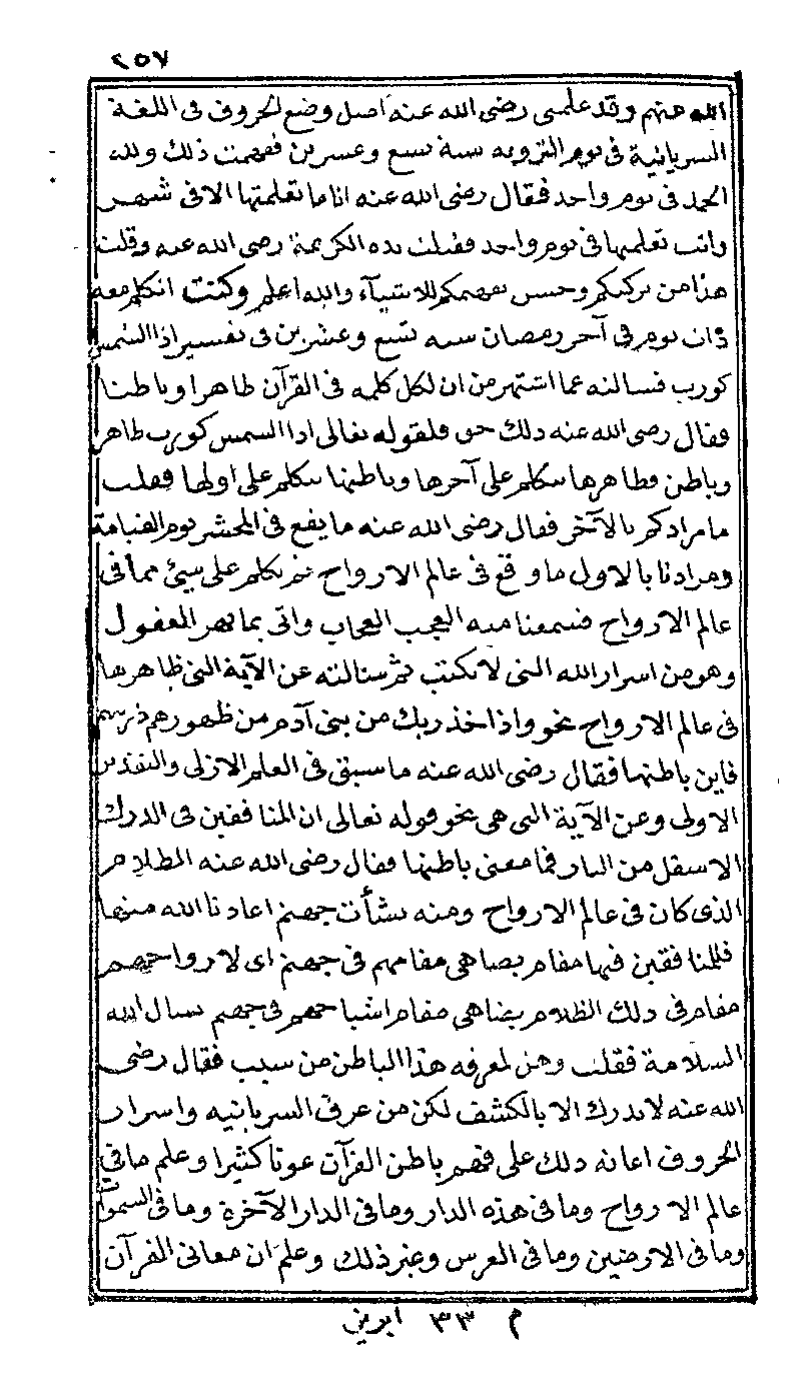 ٢٥٧
الله عنهم وقد علمنى رضى الله عنه اصل وضع الحروف فى اللغة
السريانية فى يوم التروية سنة تسع وعشرين ففهمت ذلك ولله
الحمد فى يوم واحد فقال رضى الله عنه انا ما تعلمتها الا فى شهر
وانت تعلمتها فى يوم واحد فقبلت يده الكريمة رضى الله عنه وقلت
هذا من بركتكم وحسن تفهمكم للاشيآء والله اعلم وكنت اتكلم معه
ذات يوم فى آخر رمضان سنة تسع وعشرين فى تفسير اذا الشمس
كورت فسالته عما اشتهر من ان لكل كلمة فى القرآن ظاهرا وباطنا
فقال رضى الله عنه ذلك حق فلقوله تعالى اذا الشمس كورت ظاهر
وباطن فظاهرها يتكلم على آخرها وباطنها يتكلم على اولها فقلت
ما مرادكم بالآخر فقال رضى الله عنه ما يقع فى المحشر يوم القيامة
ومرادنا بالاول ما وقع فى عالم الارواح ثم تكلم على شيئ مما فى
عالم الارواح فسمعنا منه العجب العجاب واتى بما بهر العقول
وهو من اسرار الله التى لا تكتب ثم سالته عن الآية التى ظاهرها
فى عالم الارواح نحو واذ اخذ ربك من بنى آدم من ظهورهم ذريتهم
فاين باطنها فقال رضى الله عنه ما سبق فى العلم الازلى والتقدير
الاولى وعن الآية التى هى نحو قوله تعالى ان المنافقين فى الدرك
الاسفل من النار فما معنى باطنها فقال رضى الله عنه الظلام
الذى كان فى عالم الارواح ومنه نشأت جهنم اعاذنا الله منها
فللمنافقين فيها مقام يضاهى مقامهم فى جهنم اى لارواحهم
مقام فى ذلك الظلام يضاهى مقام اشباحهم فى جهنم نسال الله
السلامة فقلت وهل لمعرفة هذا الباطن من سبب فقال رضى
الله عنه لا يدرك الا بالكشف لكن من عرف السريانية واسرار
الحروف اعانه ذلك على فهم باطن القرآن عونا كثيرا وعلم ما فى
عالم الارواح وما فى هذه الدار وما فى الدار الآخرة وما فى السموات
وما فى الارضين وما فى العرش وغير ذلك وعلم ان معانى القرآن
م ٣٣ ابريز